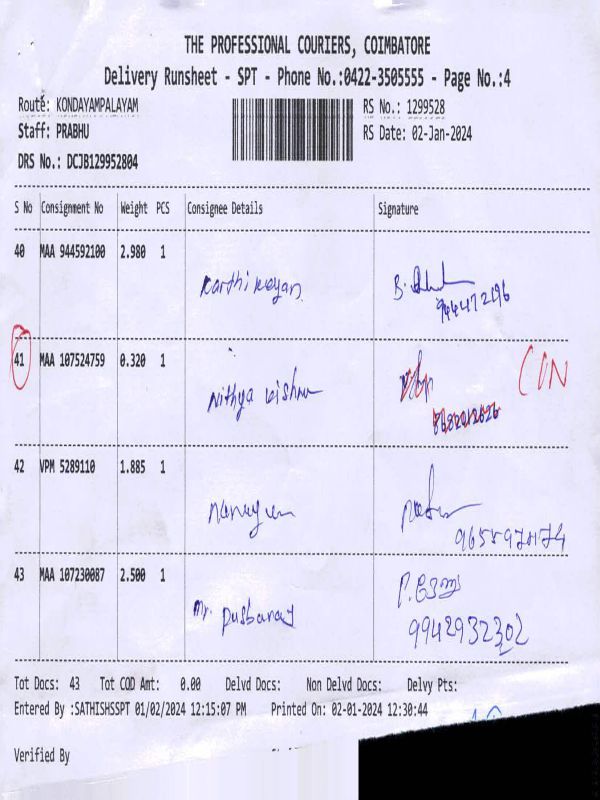 THE PROFESSIONAL COURIERS, COIMBATORE
Delivery Runsheet - SPT - Phone No.:0422-3505555 - Page No.:4
Route: KONDAYAMPALAYAM RS No.: 1299528
Staff: PRABHU RS Date: 02-Jan-2024
DRS No.: DCJB129952804
S No Consignment No Weight PCS Consignee Details Signature
40 MAA 944592100 2.980 1
Karthikeyan B.
41 MAA 107524759 0.320 1
Nithya vishnu
42 VPM 5289110 1.885 1
43 MAA 107230087 2.500 1
Mr. Pusbaraj
9942932302
Tot Docs: 43 Tot COD Amt: 0.00 Delvd Docs: Non Delvd Docs: Delvy Pts:
Entered By :SATHISHSSPT 01/02/2024 12:15:07 PM Printed On: 02-01-2024 12:30:44
Verified By